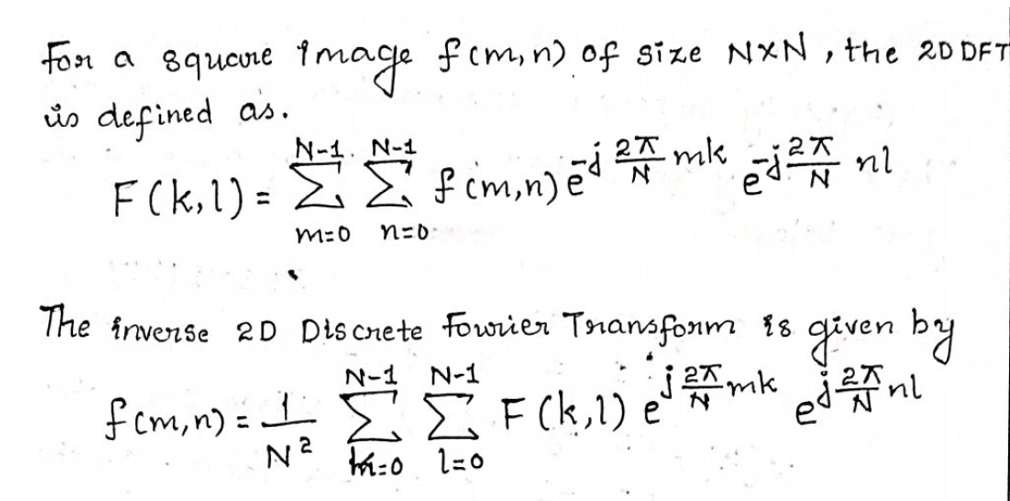 For a square image f(m,n) of size N×N, the 2D DFT
is defined as.
F(k,l) = \sum_{m=0}^{N-1} \sum_{n=0}^{N-1} f(m,n) e^{-j \frac{2π}{N} mk} e^{-j \frac{2π}{N} nl}
The inverse 2D Discrete Fourier Transform is given by
f(m,n) = \frac{1}{N^2} \sum_{k=0}^{N-1} \sum_{l=0}^{N-1} F(k,l) e^{j \frac{2π}{N} mk} e^{j \frac{2π}{N} nl}